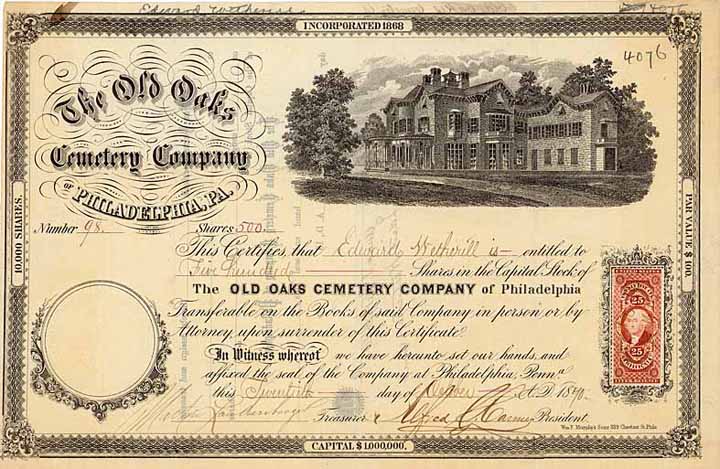 Edward Wetherill
4076
INCORPORATED 1868
4076
The Old Oaks
Cemetery Company
OF PHILADELPHIA, PA.
10,000 SHARES.
PAR VALUE $100.
Number 98. Shares 500
This Certifies that Edward Wetherill is entitled to
Five hundred Shares in the Capital Stock of
The OLD OAKS CEMETERY COMPANY of Philadelphia
Transferable on the Books of said Company in person or by
Attorney upon surrender of this Certificate.
In Witness whereof we have hereunto set our hands, and
affixed the seal of the Company at Philadelphia, Penna
this Twentieth day of October A.D. 1870.
Treasurer Alfred C. Harmer President.
25
25
Wm F. Murphy's Sons 339 Chestnut St. Phila
CAPITAL $1,000,000.